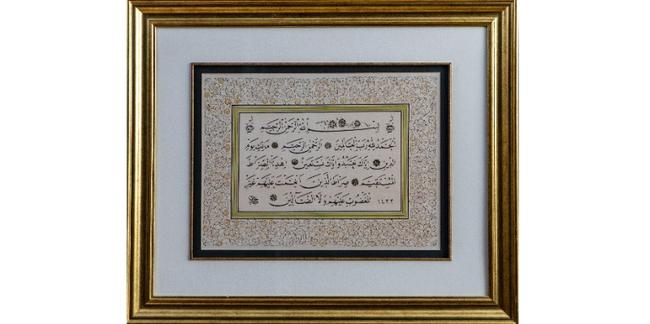 بسم الله الرحمن الرحيم
الحمد لله رب العالمين الرحمن الرحيم مالك يوم
الدين إياك نعبد وإياك نستعين اهدنا الصراط
المستقيم صراط الذين أنعمت عليهم غير
المغضوب عليهم ولا الضالين ١٤٣٣